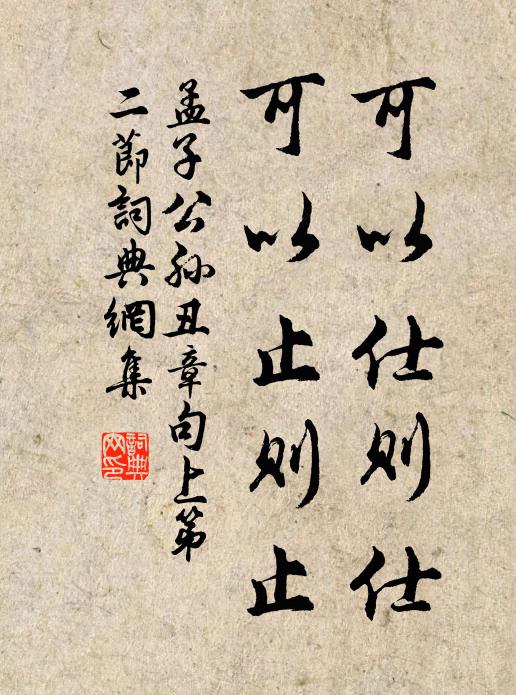 可以仕則仕
可以止則止
孟子公孫丑章句上第
二節詞典網集
詞典
网印